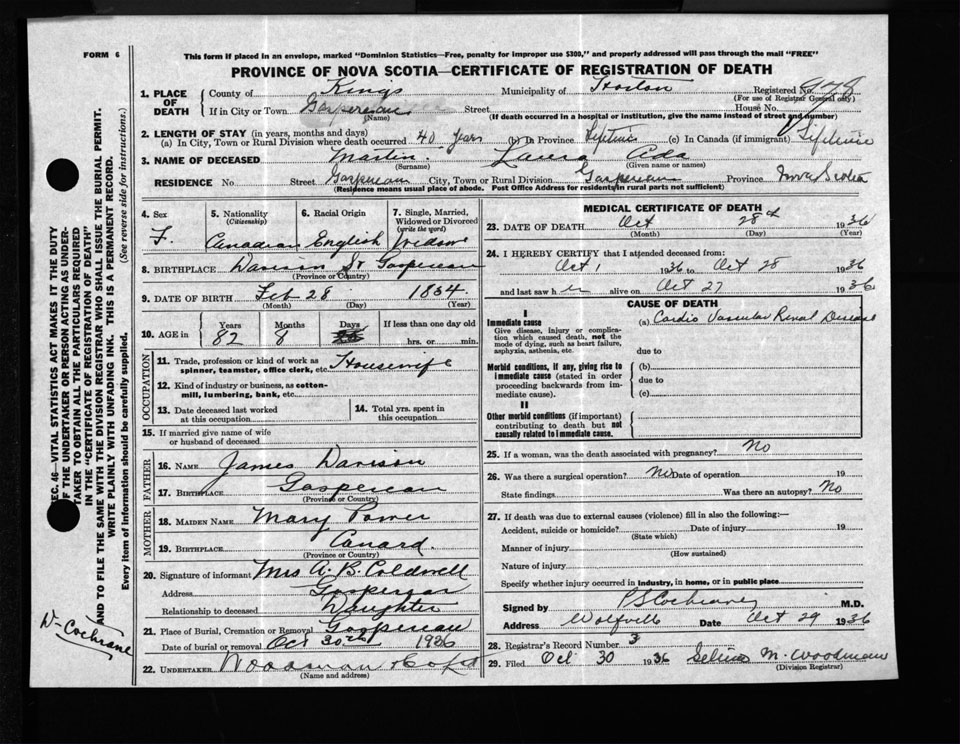 FORM 6
This form if placed in an envelope, marked "Dominion Statistics—Free, penalty for improper use $300," and properly addressed will pass through the mail "FREE"
PROVINCE OF NOVA SCOTIA—CERTIFICATE OF REGISTRATION OF DEATH
1. PLACE OF DEATH
County of Kings Municipality of Horton Registered No.
(For use of Registrar General only)
If in City or Town Gaspereau Street House No.
(Name) (If death occurred in a hospital or institution, give the name instead of street and number)
2. LENGTH OF STAY (in years, months and days)
(a) In City, Town or Rural Division where death occurred 40 Years (b) In Province Lifetime (c) In Canada (if immigrant) Lifetime
3. NAME OF DECEASED Martin. Laura Ada
(Surname) (Given name or names)
RESIDENCE No Street Gaspereau City, Town or Rural Division Gaspereau Province Nova Scotia
(Residence means usual place of abode. Post Office Address for residents in rural parts not sufficient)
4. Sex
F.
5. Nationality
(Citizenship)
Canadian
6. Racial Origin
English
7. Single, Married, Widowed or Divorced
(write the word)
Widow
8. BIRTHPLACE Davison St Gaspereau
(Province or Country)
9. DATE OF BIRTH Feb 28 1854
(Month) (Day) (Year)
10. AGE in
Years
82
Months
8
Days
If less than one day old
hrs. or min.
OCCUPATION
11. Trade, profession or kind of work as spinner, teamster, office clerk, etc. Housewife
12. Kind of industry or business, as cotton-mill, lumbering, bank, etc.
13. Date deceased last worked at this occupation
14. Total yrs. spent in this occupation
15. If married give name of wife or husband of deceased
FATHER
16. NAME James Davison
17. BIRTHPLACE Gaspereau
(Province or Country)
MOTHER
18. MAIDEN NAME Mary Power
19. BIRTHPLACE Canard.
(Province or Country)
20. Signature of informant Mrs A. B. Coldwell
Address Gaspereau
Relationship to deceased Daughter
21. Place of Burial, Cremation or Removal Gaspereau
Date of burial or removal Oct 30th 1936
22. UNDERTAKER Woodman
(Name and address)
MEDICAL CERTIFICATE OF DEATH
23. DATE OF DEATH Oct 28th 1936
(Month) (Day) (Year)
24. I HEREBY CERTIFY that I attended deceased from:
Oct 1 1936 to Oct 28 1936
and last saw h er alive on Oct 27 1936
CAUSE OF DEATH
I
Immediate cause
Give disease, injury or complication which caused death, not the mode of dying, such as heart failure, asphyxia, asthenia, etc.
(a) Cardio Vascular Renal Disease
due to
Morbid conditions, if any, giving rise to immediate cause (stated in order proceeding backwards from immediate cause).
(b)
due to
(c)
II
Other morbid conditions (if important) contributing to death but not causally related to immediate cause.
25. If a woman, was the death associated with pregnancy? No
26. Was there a surgical operation? No Date of operation 19
State findings Was there an autopsy? No
27. If death was due to external causes (violence) fill in also the following:—
Accident, suicide or homicide? Date of injury 19
(State which)
Manner of injury
(How sustained)
Nature of injury
Specify whether injury occurred in industry, in home, or in public place
Signed by Cochrane M.D.
Address Wolfville Date Oct 29 1936
28. Registrar's Record Number 3
29. Filed Oct 30 1936 M. Woodman
(Division Registrar)
SEC. 46—VITAL STATISTICS ACT MAKES IT THE DUTY
OF THE UNDERTAKER OR PERSON ACTING AS UNDER-
TAKER TO OBTAIN ALL THE PARTICULARS REQUIRED
IN THE "CERTIFICATE OF REGISTRATION OF DEATH"
AND TO FILE THE SAME WITH THE DIVISION REGISTRAR WHO SHALL ISSUE THE BURIAL PERMIT.
WRITE PLAINLY WITH UNFADING INK. THIS IS A PERMANENT RECORD.
Every item of information should be carefully supplied. (See reverse side for instructions.)
Cochrane